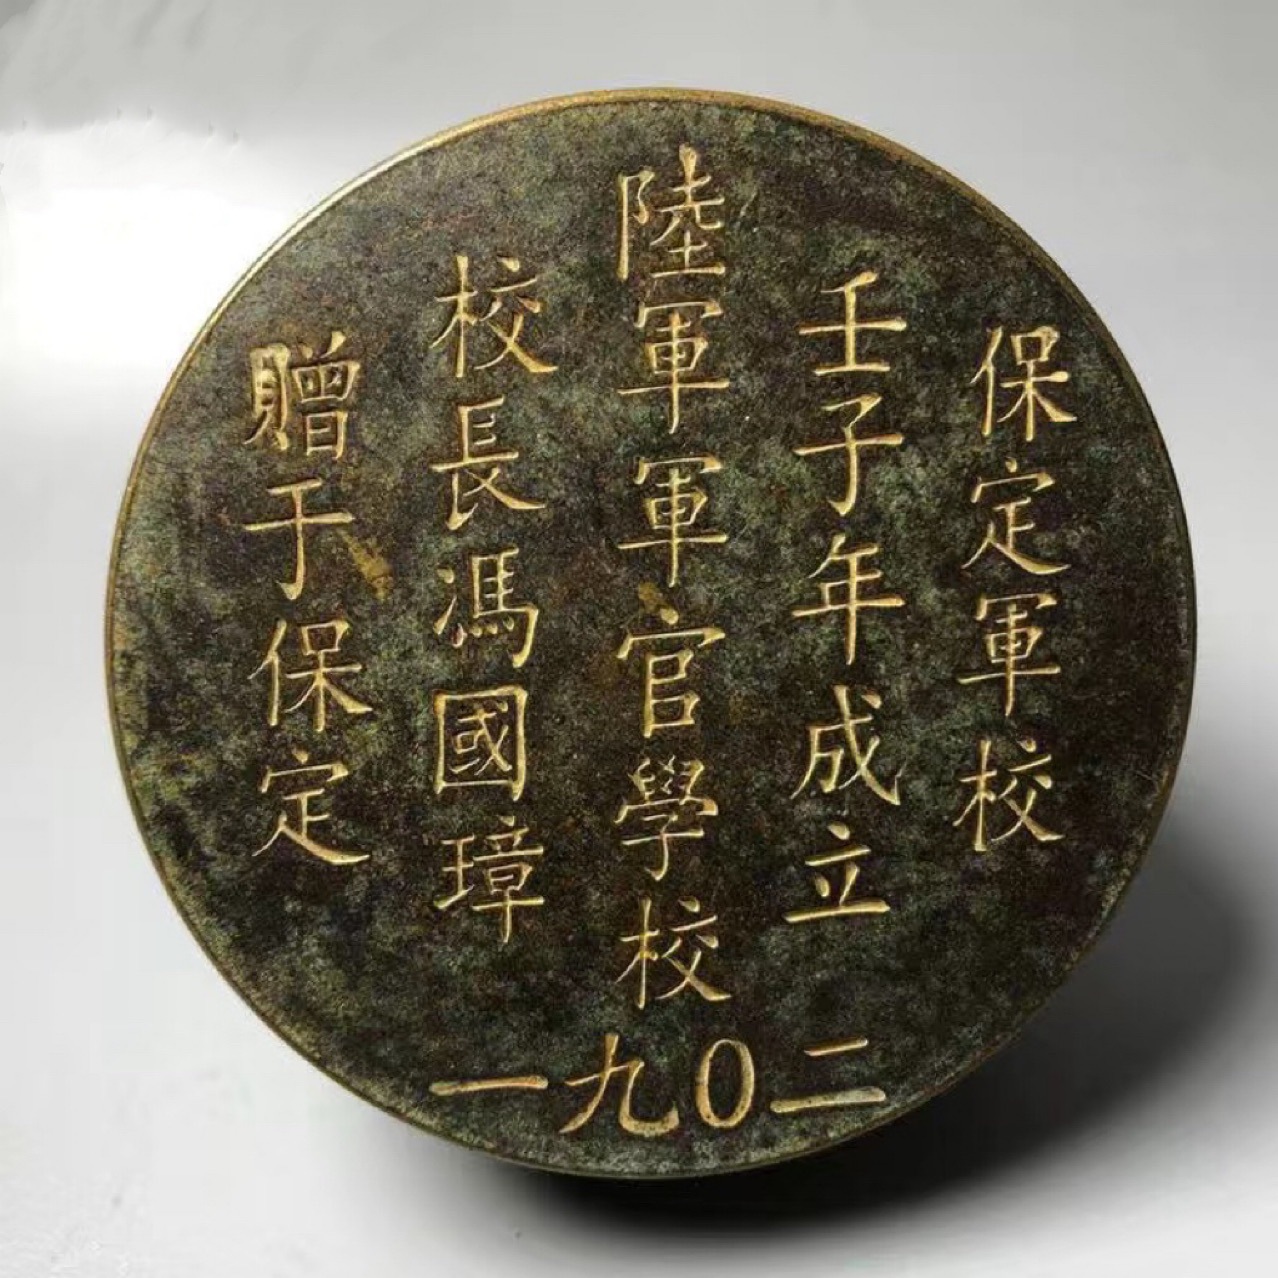 保定軍校
壬子年成立
陸軍軍官學校
校長馮國璋
贈于保定
一九0二